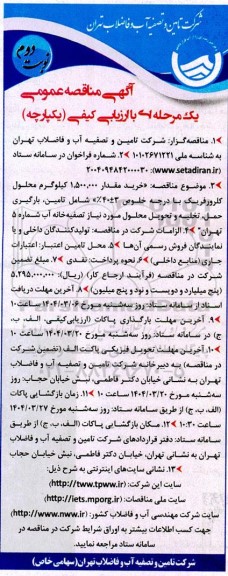 شرکت تامین و تصفیه آب و فاضلاب تهران
نوبت دوم
آگهی مناقصه عمومی
یک مرحله ای با ارزیابی کیفی (یکپارچه)
۱. مناقصه‌گزار: شرکت تامین و تصفیه آب و فاضلاب تهران
به شناسه ملی ۱۰۱۰۲۶۷۱۲۲۱ ۲. شماره فراخوان در سامانه ستاد
(www.setadiran.ir): ۲۰۰۴۰۹۴۸۴۲۰۰۰۰۳۰
۳. موضوع مناقصه: «خرید مقدار ۱,۵۰۰,۰۰۰ کیلوگرم محلول
کلروفریک با درجه خلوص ۲±۴۰٪» شامل تامین، بارگیری
حمل، تخلیه و تحویل محلول مورد نیاز تصفیه‌خانه آب شماره ۵
تهران" ۴. الزامات شرکت در مناقصه: تولیدکنندگان داخلی و یا
نمایندگان فروش رسمی آن‌ها ۵. محل تامین اعتبار: اعتبارات
جاری (منابع داخلی) ۶. نحوه پرداخت: نقدی ۷. مبلغ تضمین
شرکت در مناقصه (فرآیند ارجاع کار) (ریال): ۵,۲۹۵,۰۰۰,۰۰۰
(پنج میلیارد و دویست و نود و پنج میلیون) ۸. آخرین مهلت دریافت
اسناد از سامانه ستاد: روز سه‌شنبه مورخ ۱۴۰۴/۰۳/۰۶ ساعت ۱۰
۹. آخرین مهلت بارگذاری پاکات (ارزیابی‌کیفی، الف، ب،
ج) در سامانه ستاد: روز سه‌شنبه مورخ ۱۴۰۴/۰۳/۲۰ ساعت ۱۰
۱۰. آخرین مهلت تحویل فیزیکی پاکت الف (تضمین شرکت
در مناقصه) به دبیرخانه شرکت تامین و تصفیه آب و فاضلاب
تهران به نشانی خیابان دکتر فاطمی، نبش خیابان حجاب: روز
سه‌شنبه مورخ ۱۴۰۴/۰۳/۲۰ ساعت ۱۰ ۱۱. زمان بازگشایی پاکات
(الف، ب، ج) از طریق سامانه ستاد: روز سه‌شنبه مورخ ۱۴۰۴/۰۳/۲۷
ساعت ۱۰:۳۰ ۱۲. مکان بازگشایی پاکات (الف، ب، ج) از طریق
سامانه ستاد: دفتر قراردادهای شرکت تامین و تصفیه آب و فاضلاب
تهران به نشانی تهران، خیابان دکتر فاطمی، نبش خیابان حجاب
۱۳. نشانی سایت‌های اینترنتی به شرح ذیل:
سایت این شرکت: (http://tww.tpww.ir)
سایت ملی مناقصات: (http://iets.mporg.ir)
سایت شرکت مهندسی آب و فاضلاب کشور: (http://www.nww.ir)
جهت کسب اطلاعات بیشتر به اوراق شرایط شرکت در مناقصه در
سامانه ستاد مراجعه نمایید.
شرکت تامین و تصفیه آب و فاضلاب تهران (سهامی خاص)